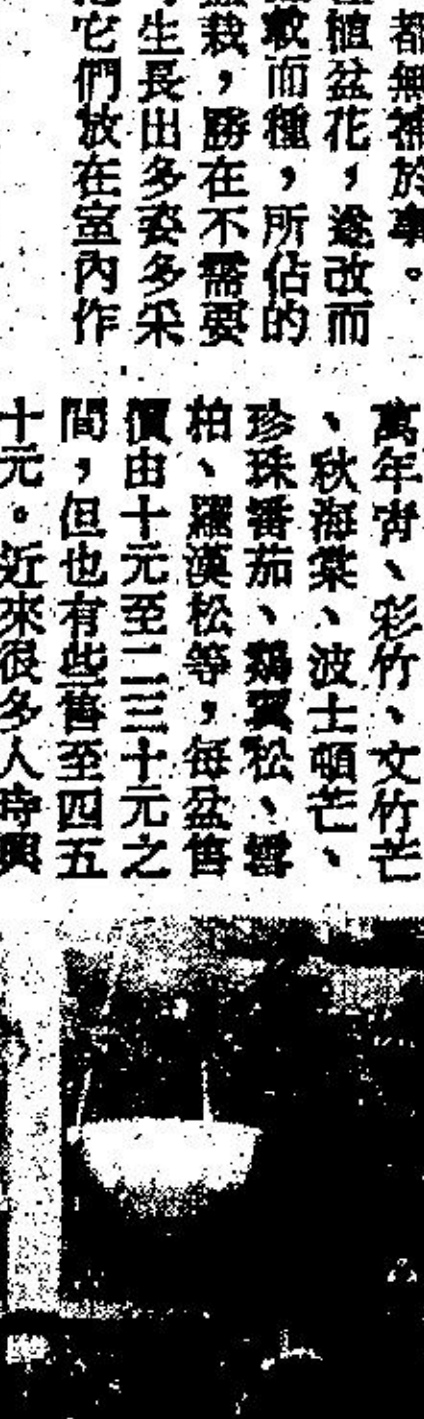 都無補於事。
植盆花，遂改而
而種，所佔的
栽，勝在不需要
生長出多姿多采
它們放在室內作
萬年青、彩竹、文竹芒
、秋海棠、波士頓芒、
珍珠番茄、翼松、雪
柏、羅漢松等，每盆售
價由十元至二三十元之
間，但也有些售至四五
十元。近來很多人時興